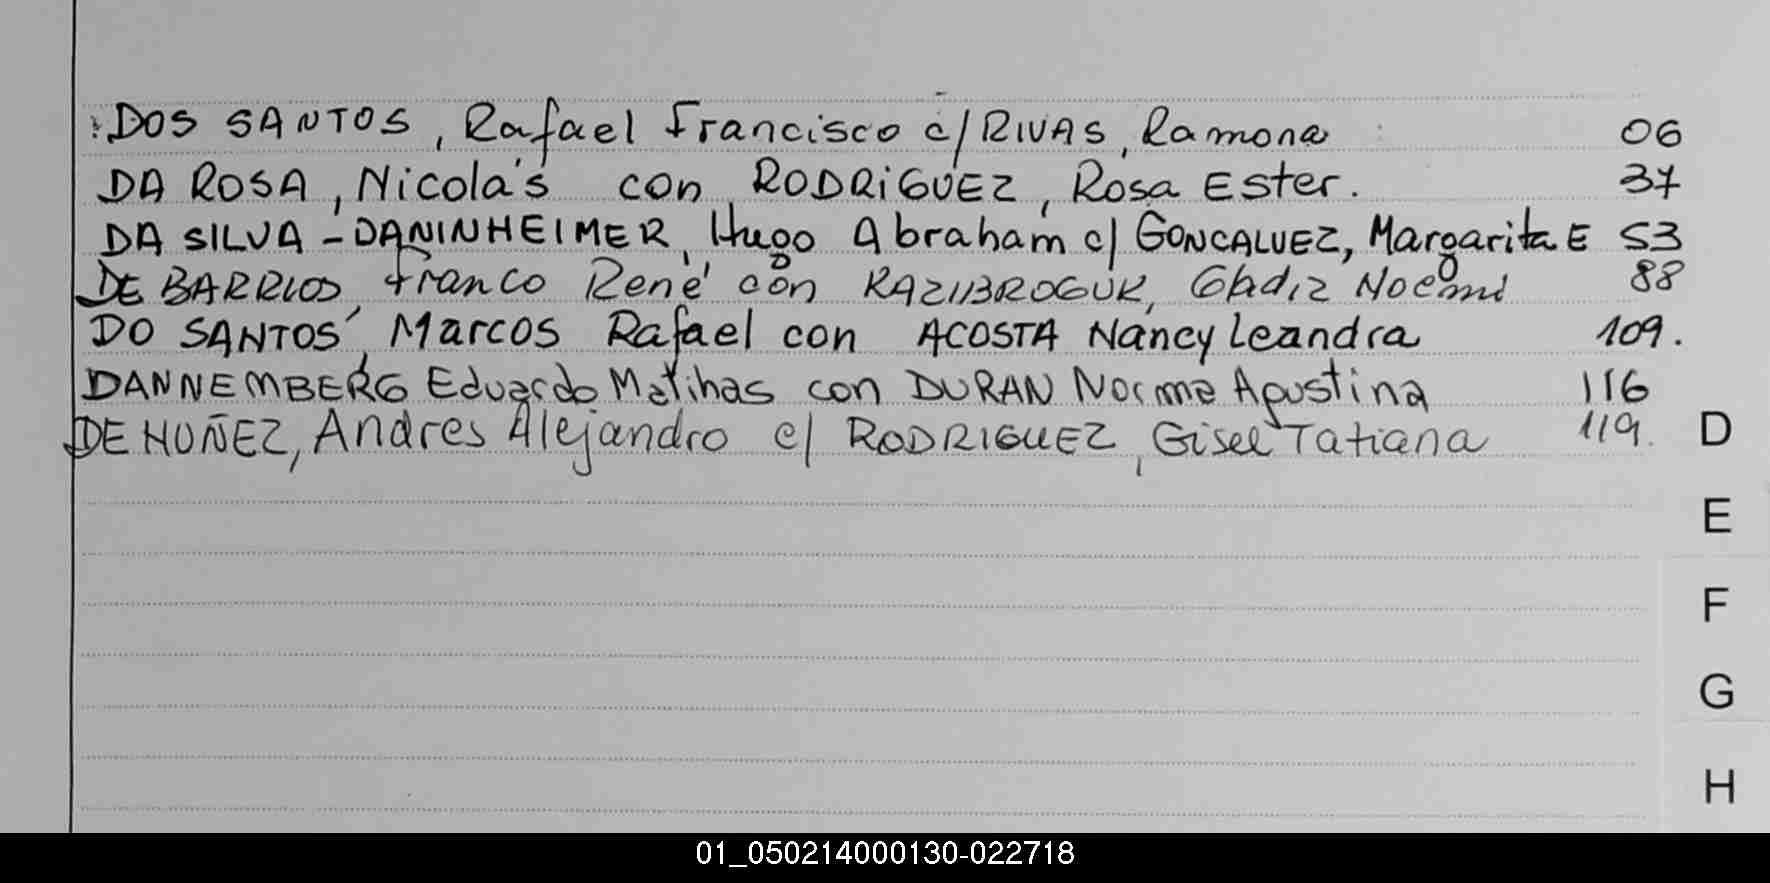 DOS SANTOS, Rafael Francisco c/ RIVAS, Ramona 06
DA ROSA, Nicolás con RODRIGUEZ, Rosa Ester. 37
DA SILVA - DANINHEIMER, Hugo Abraham c/ GONCALUEZ, Margarita E 53
DE BARRIOS, Franco René con Noemi 88
DO SANTOS, Marcos Rafael con ACOSTA Nancy Leandra 109.
DANNEMBERG Eduardo Matihas con DURAN Norma Agustina 116
DE NUÑEZ, Andres Alejandro c/ RODRIGUEZ, Gisel Tatiana 119.
D
E
F
G
H
01_050214000130-022718